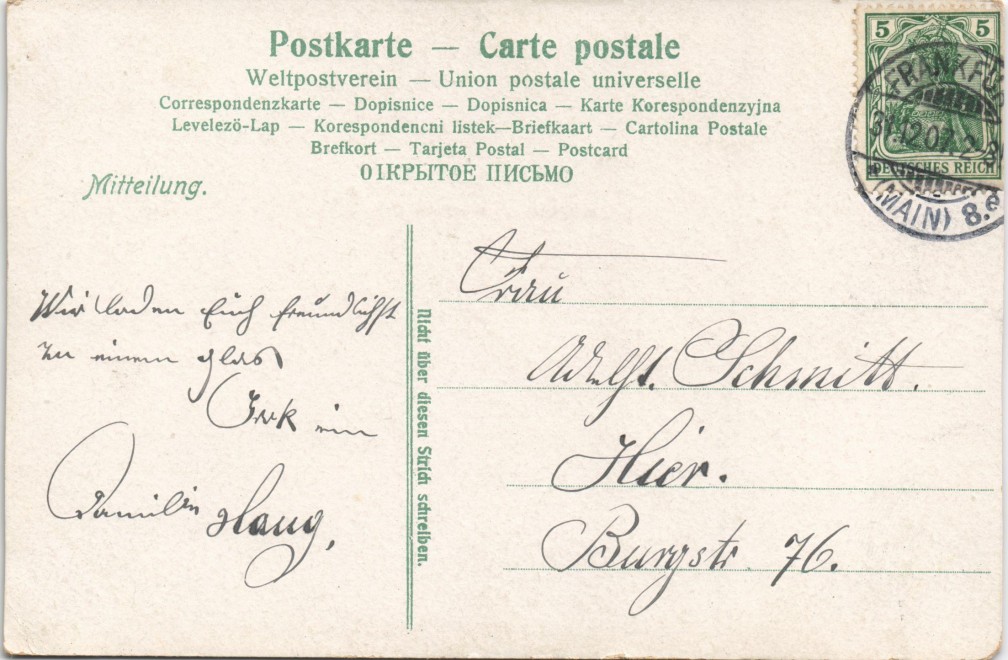 Postkarte — Carte postale
Weltpostverein — Union postale universelle
Correspondenzkarte — Dopisnice — Dopisnica — Karte Korespondenzyjna
Levelezö-Lap — Korespondencni listek—Briefkaart — Cartolina Postale
Brefkort — Tarjeta Postal — Postcard
ОТКРЫТОЕ ПИСЬМО
Mitteilung.
5 5
DEUTSCHES REICH
FRANKFU
31.12.07. 2-3
(MAIN) 8.e
Wir laden Euch freundlichst
zu einem Glas
ein
Familie Haug,
Nicht über diesen Strich schreiben.
Frau
Adolf. Schmitt.
Hier.
Burgstr 76.